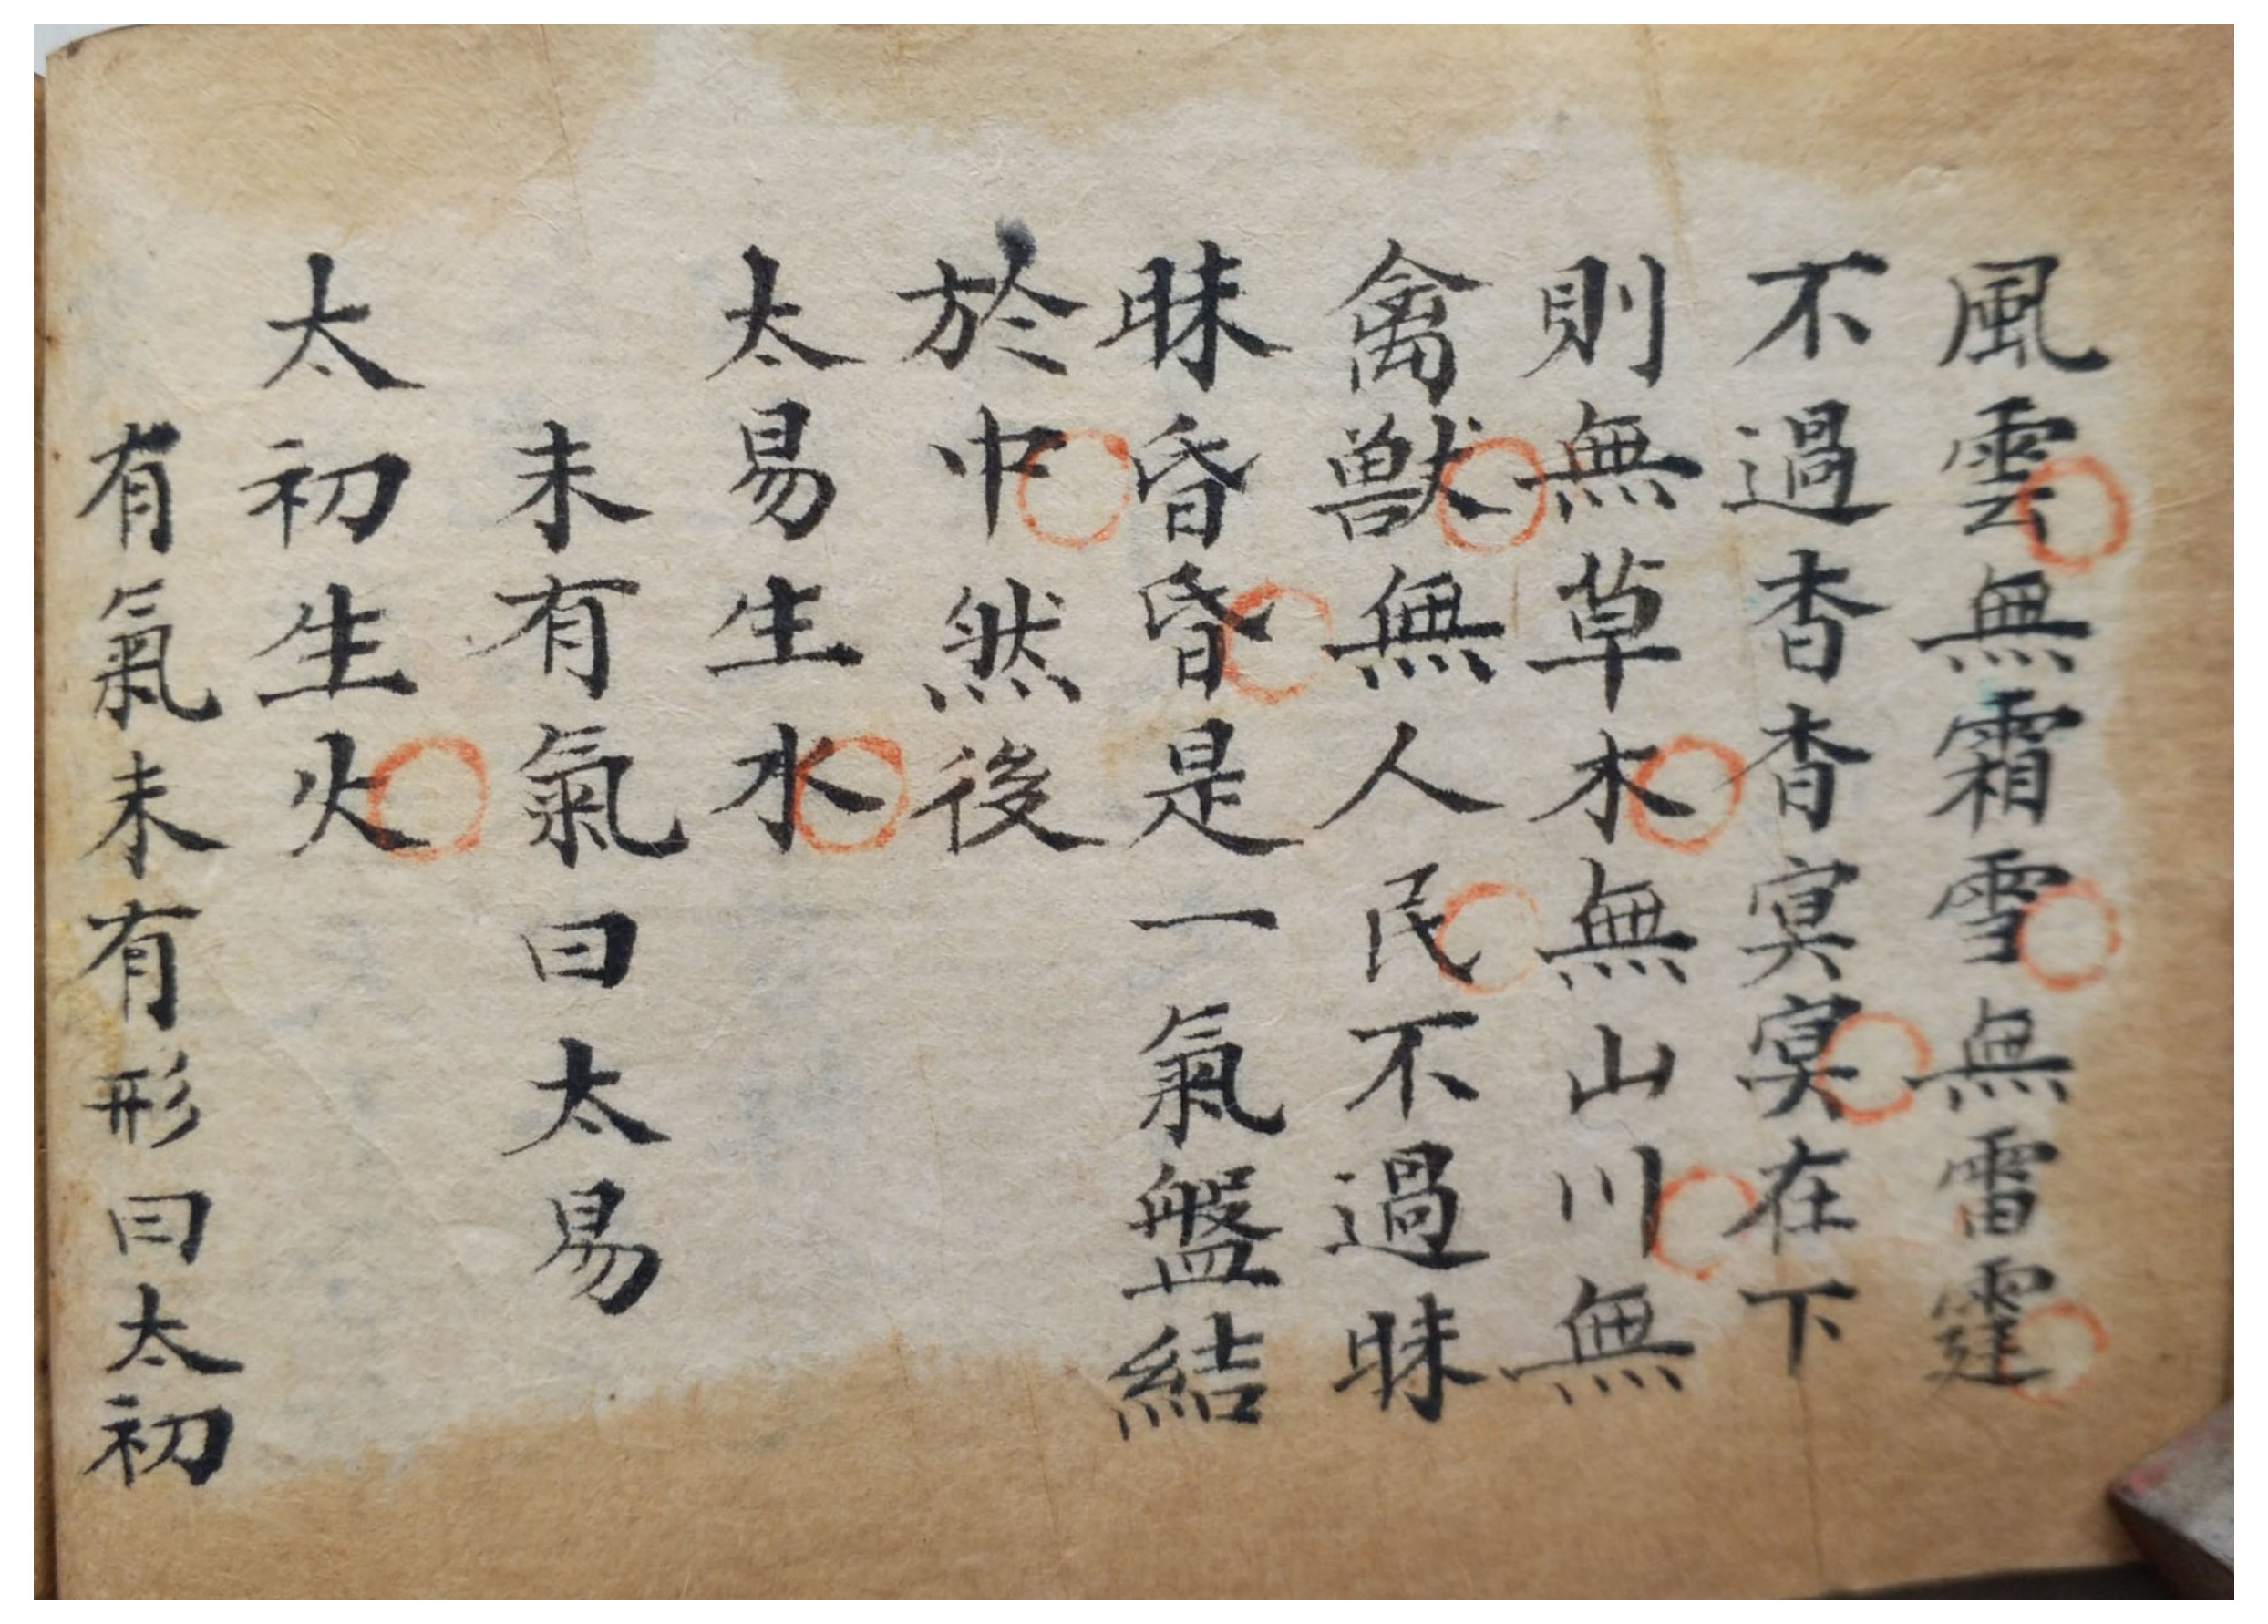 風雲無霜雪無雷霆
不過杳杳冥冥在下
則無草木無山川無
禽獸無人民不過昧
昧昏昏是一氣盤結
於中然後
太易生水
未有氣曰太易
太初生火
有氣未有形曰太初